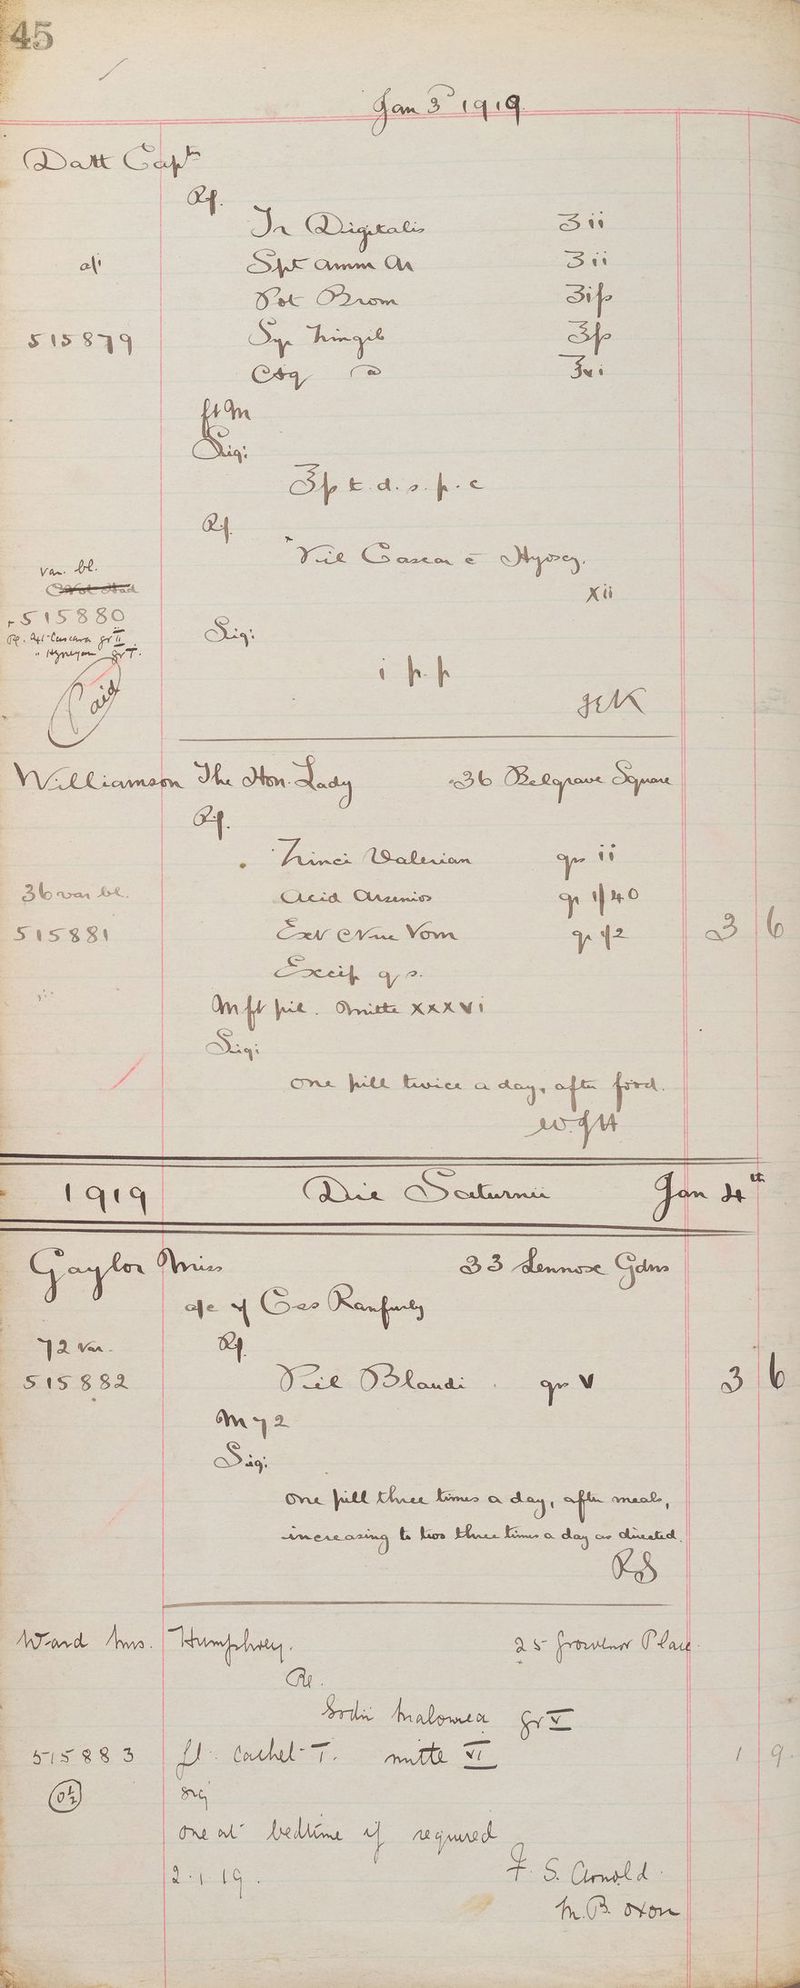 45
Jan 3d 1919
Datt Captn
Rx.
Tr Digitalis ʒii
a/c Spt Amm Ar ʒii
Pot Brom ʒifs
515879 Syr Zingib ℥fs
Aq ad ℥vi
ft M
Sig:
℥fs t. d. s. p. c
Rx.
Pil Cascar c̄ Hyoscy.
var. bl.
xii
515880
Rx. Ext Cascara gr II
" Hyoscyam gr I.
Sig:
i p. p
Paid
JEK
Williamson The Hon. Lady 36 Belgrave Square
Rx.
Zinci Valerian grs ii
36 var bl. Acid Arsenios gr 1/40
515881 Ext Nuc Vom gr 1/2 3 6
Excip q s.
M ft pil. Mitte xxxvi
Sig:
one pill twice a day, after food.
W.G.H
1919 Die Saturnii Jan 4th
Gaylor Miss 33 Lennox Gdns
a/c of Ces Ranfurly
72 var. Rx
515882 Pil Blaudi grs V 3 6
M 72
Sig:
one pill three times a day, after meals,
increasing to two three times a day as directed.
RS
Ward Mrs. Humphrey. 25 Grosvenor Place.
Rx.
Sodii Malourea gr V
515883 ft. cachet I. mitte VI 1 9
0½ sig
one at bedtime if required
2.1.19. F. S. Arnold.
M.B. Oxon